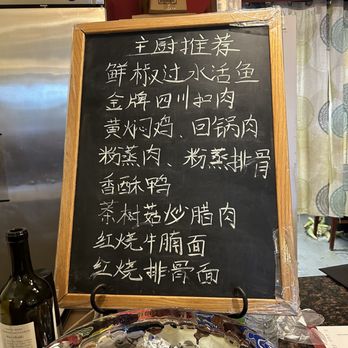 主厨推荐
鲜椒过水活鱼
金牌四川扣肉
黄焖鸡、回锅肉
粉蒸肉、粉蒸排骨
香酥鸭
茶树菇炒腊肉
红烧牛腩面
红烧排骨面